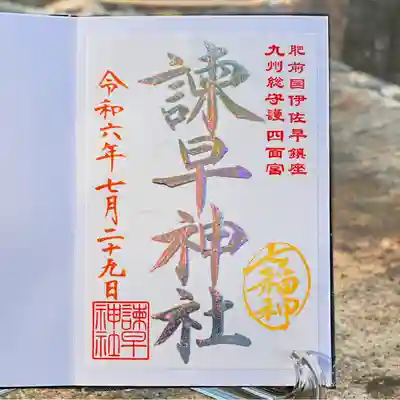 肥前国伊佐早鎮座
九州総守護四面宮
諫早神社
七福神
令和六年七月二十九日
諫早
神社